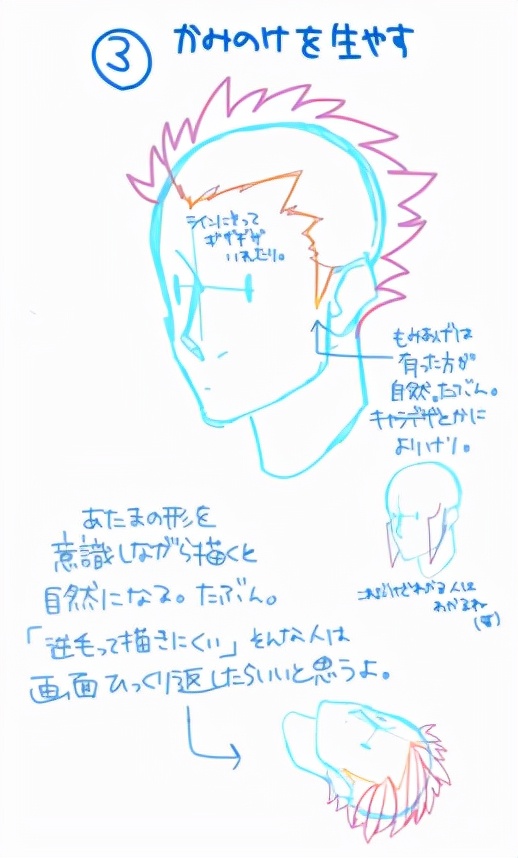 ③ かみのけを生やす
ラインにそって
ギザギザ
いれたり。
もみあげは
有った方が
自然。たぶん。
キャラデザとかに
よりけり。
わかる人は
わかるね
あたまの形を
意識しながら描くと
自然になる。たぶん。
「逆毛って描きにくい」そんな人は
画面ひっくり返したらいいと思うよ。